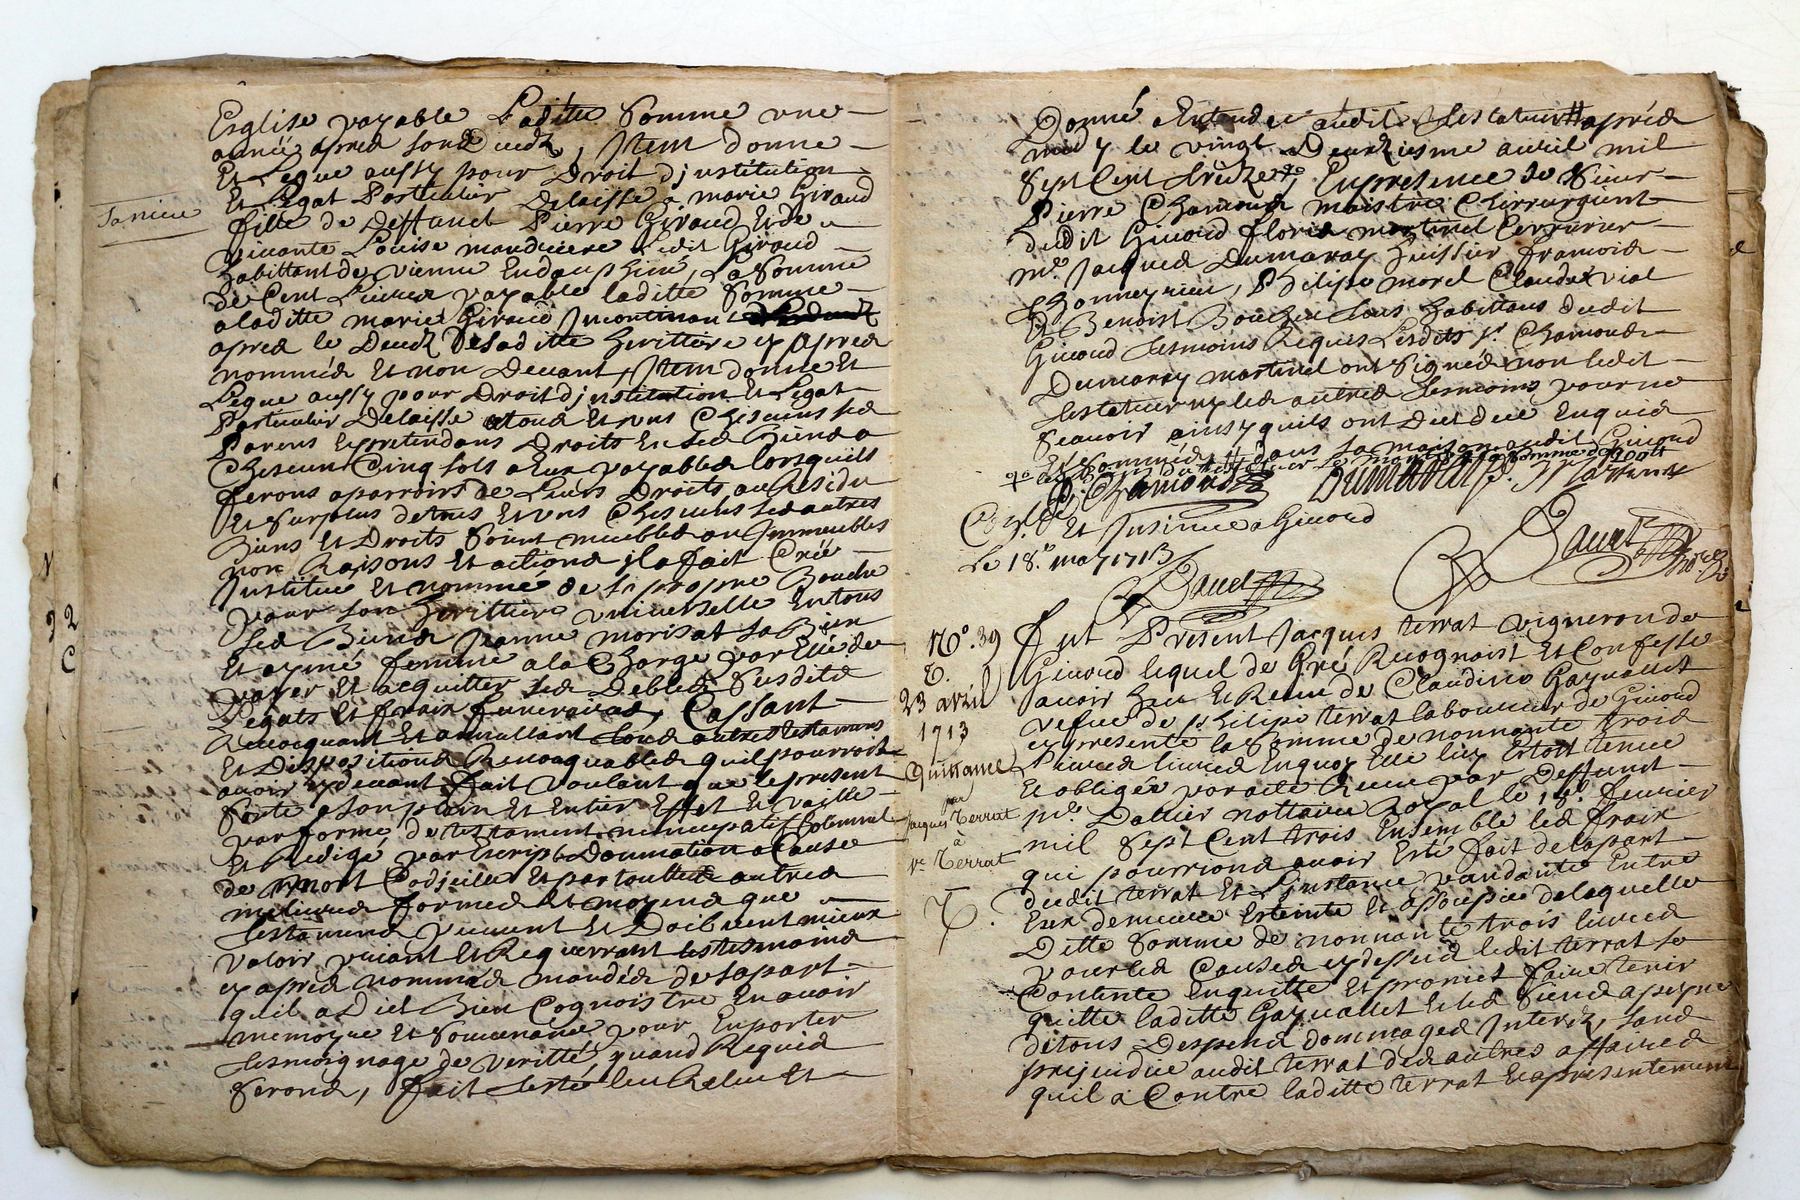 Esglise payable Laditte somme une
année apres sond decedz, Item donne
Et Legue aussy pour Droit dinstitution
Et Legat Particulier Delaisse a marie Giraud
sa niece
fille de Deffunct Pierre Giraud Et de
vivante Louise
habittant de vienne En dauphiné, La somme
de Cent Livres payable laditte somme
a laditte marie Giraud Incontinant
apres le Decedz de saditte heritiere cy apres
nommée Et non Devant, Item donne Et
Legue aussy pour Droit dinstitution Et Legat
Particulier Delaisse a tous Et uns Chescuns ses
Parens Et pretendans Droits En ses Biens a
Chescun Cinq sols a Eux payables lorsquils
ferons aparroirs de Leurs Droits au Residu
Et surplus de tous Et uns Chescuns ses autres
Biens Et Droits soint meubles ou Immeubles
nom Raisons Et actions il a fait Créé
Institue Et nomme de sa propre Bouche
pour son heritiere universelle En tous
ses Biens Jeanne morisat sa Bien
Et aymé femme a la Charge par Elle de
payer Et acquitter ses Debtes susdits
Legats Et fraix funeraires, Cassant
Revocquant Et annullant tous autres testamens
Et Dispositions Revocquables quil pourroit
avoir cy devant fait voulant que le present
sorte a son plain Et Entier Effet Et vaille
par forme de testament nuncupatif solemnel
Et Redigé par Escript Donnation a Cause
de mort Codicille Et par toutes autres
meilieures formes Et moyens que
testamens peuvent Et Doibvent mieux
valoir priant Et Requerrant les tesmoins
cy apres nommés mandés de sa part
quil a Dict Bien Cognoistre En avoir
memoyre Et souvenance pour En porter
tesmoignage de veritté quand Requis
serons, fait testé leu Releu Et
Donné a Entendre audit testateur apres
midy le vingt Deuxiesme avril mil
sept Cent treize, En presence de sieur
Pierre Chamond maistre Chirrurgient
dudit Givord floris martinel serrurier
me. Jacques Dumarey huissier francois
Thonneyrieu, Philippe morel Claude vial
Et Benoist tous habittans dudit
Givord tesmoins Requis Lesdits sr. Chamond
Dumarey martinel ont signés non ledit
testateur ny les autres tesmoins pour ne
scavoir ainsy quils ont dict de ce Enquis
Et sommés dans sa maison audit Givord
P. Chamond Dumarey Martinel
Conlé Et Insinué a Givord
Le 18.e may 1713
Dauet Dauet
No. 39
23 avril
1713
Quittance
par
jacques Terrat
à
ve. Terrat
fut Present Jacques terrat vigneron de
Givord lequel de Gré Recognoist Et Confesse
avoir heu Et Receu de Claudine Gaynallet
vefue de philipe terrat laboureur de Givord
cy presente la somme de nonnante trois
Livres En quoy Elle luy Estoit tenue
Et obligée par acte Receu par Deffunct
me. Dallier nottaire Royal le 18e. fevrier
mil sept Cent trois Ensemble les fraix
qui pourrions avoir Esté fait de la part
dudit terrat Et Linstance pandante Entre
Eux demeure Esteinte Et assoupie de laquelle
Ditte somme de nonnante trois livres
pour les Causes cy dessus ledit terrat se
Contente En quitte Et promet faire tenir
quitte laditte Gaynallet Et les siens a peyne
de tous Despens dommages Interestz, sans
prejudice audit terrat des autres affaires
quil a Contre laditte terrat Et a presentement